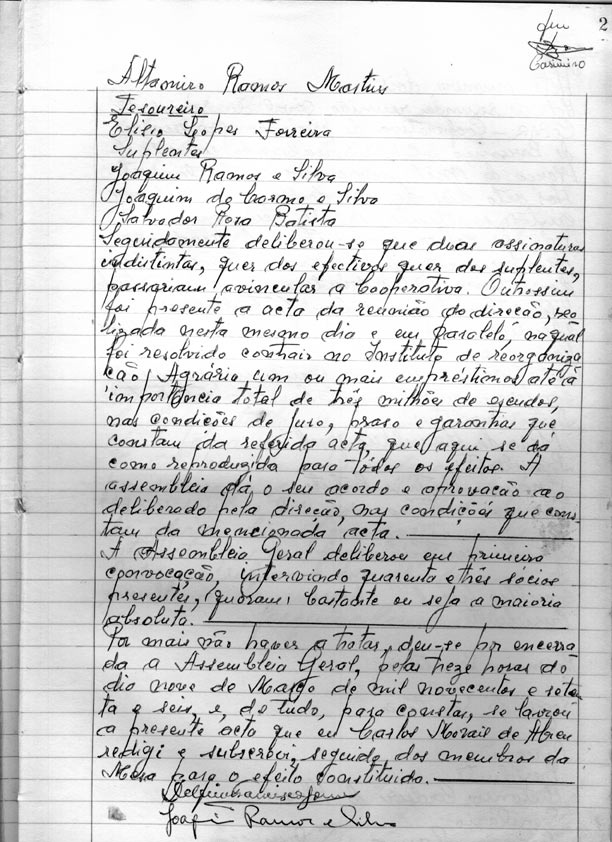 2
Casimiro
Altamiro Ramos Martins
Tesoureiro
Elisio Lopes Ferreira
Suplentes
Joaquim Ramos e Silva
Joaquim do Carmo e Silva
Salvador Rosa Batista
Seguidamente deliberou-se que duas assinaturas
indistintas, quer dos efectivos quer dos suplentes,
passariam a vincular a Cooperativa. Outrossim
foi presente a acta da reunião da direcção, rea
lizada nesta mesmo dia e em paralelo, na qual
foi resolvido contrair no Instituto de reorganiza
ção Agrária um ou mais empréstimos até à
importância total de três milhões de escudos,
nas condições de juro, praso e garantias que
constam da referida acta, que aqui se dá
como reproduzida para tôdos os efeitos. A
assembleia dá o seu acordo e aprovação ao
deliberado pela direcção, nas condições que cons-
tam da mencionada acta.
A Assembleia Geral deliberou em primeira
convocação, intervindo quarenta e três sócios
presentes, quorum bastante ou seja a maioria
absoluta.
Por mais não haver a tratar, deu-se por encerra
da a Assembleia Geral, pelas treze horas do
dia nove de Março de mil novecentos e seten
ta e seis, e, de tudo, para constar, se lavrou
a presente acta que eu Carlos Morais de Abreu
redigi e subscrevi, seguido dos membros da
Mesa para o efeito constituida.
Joaquim Ramos e Silva